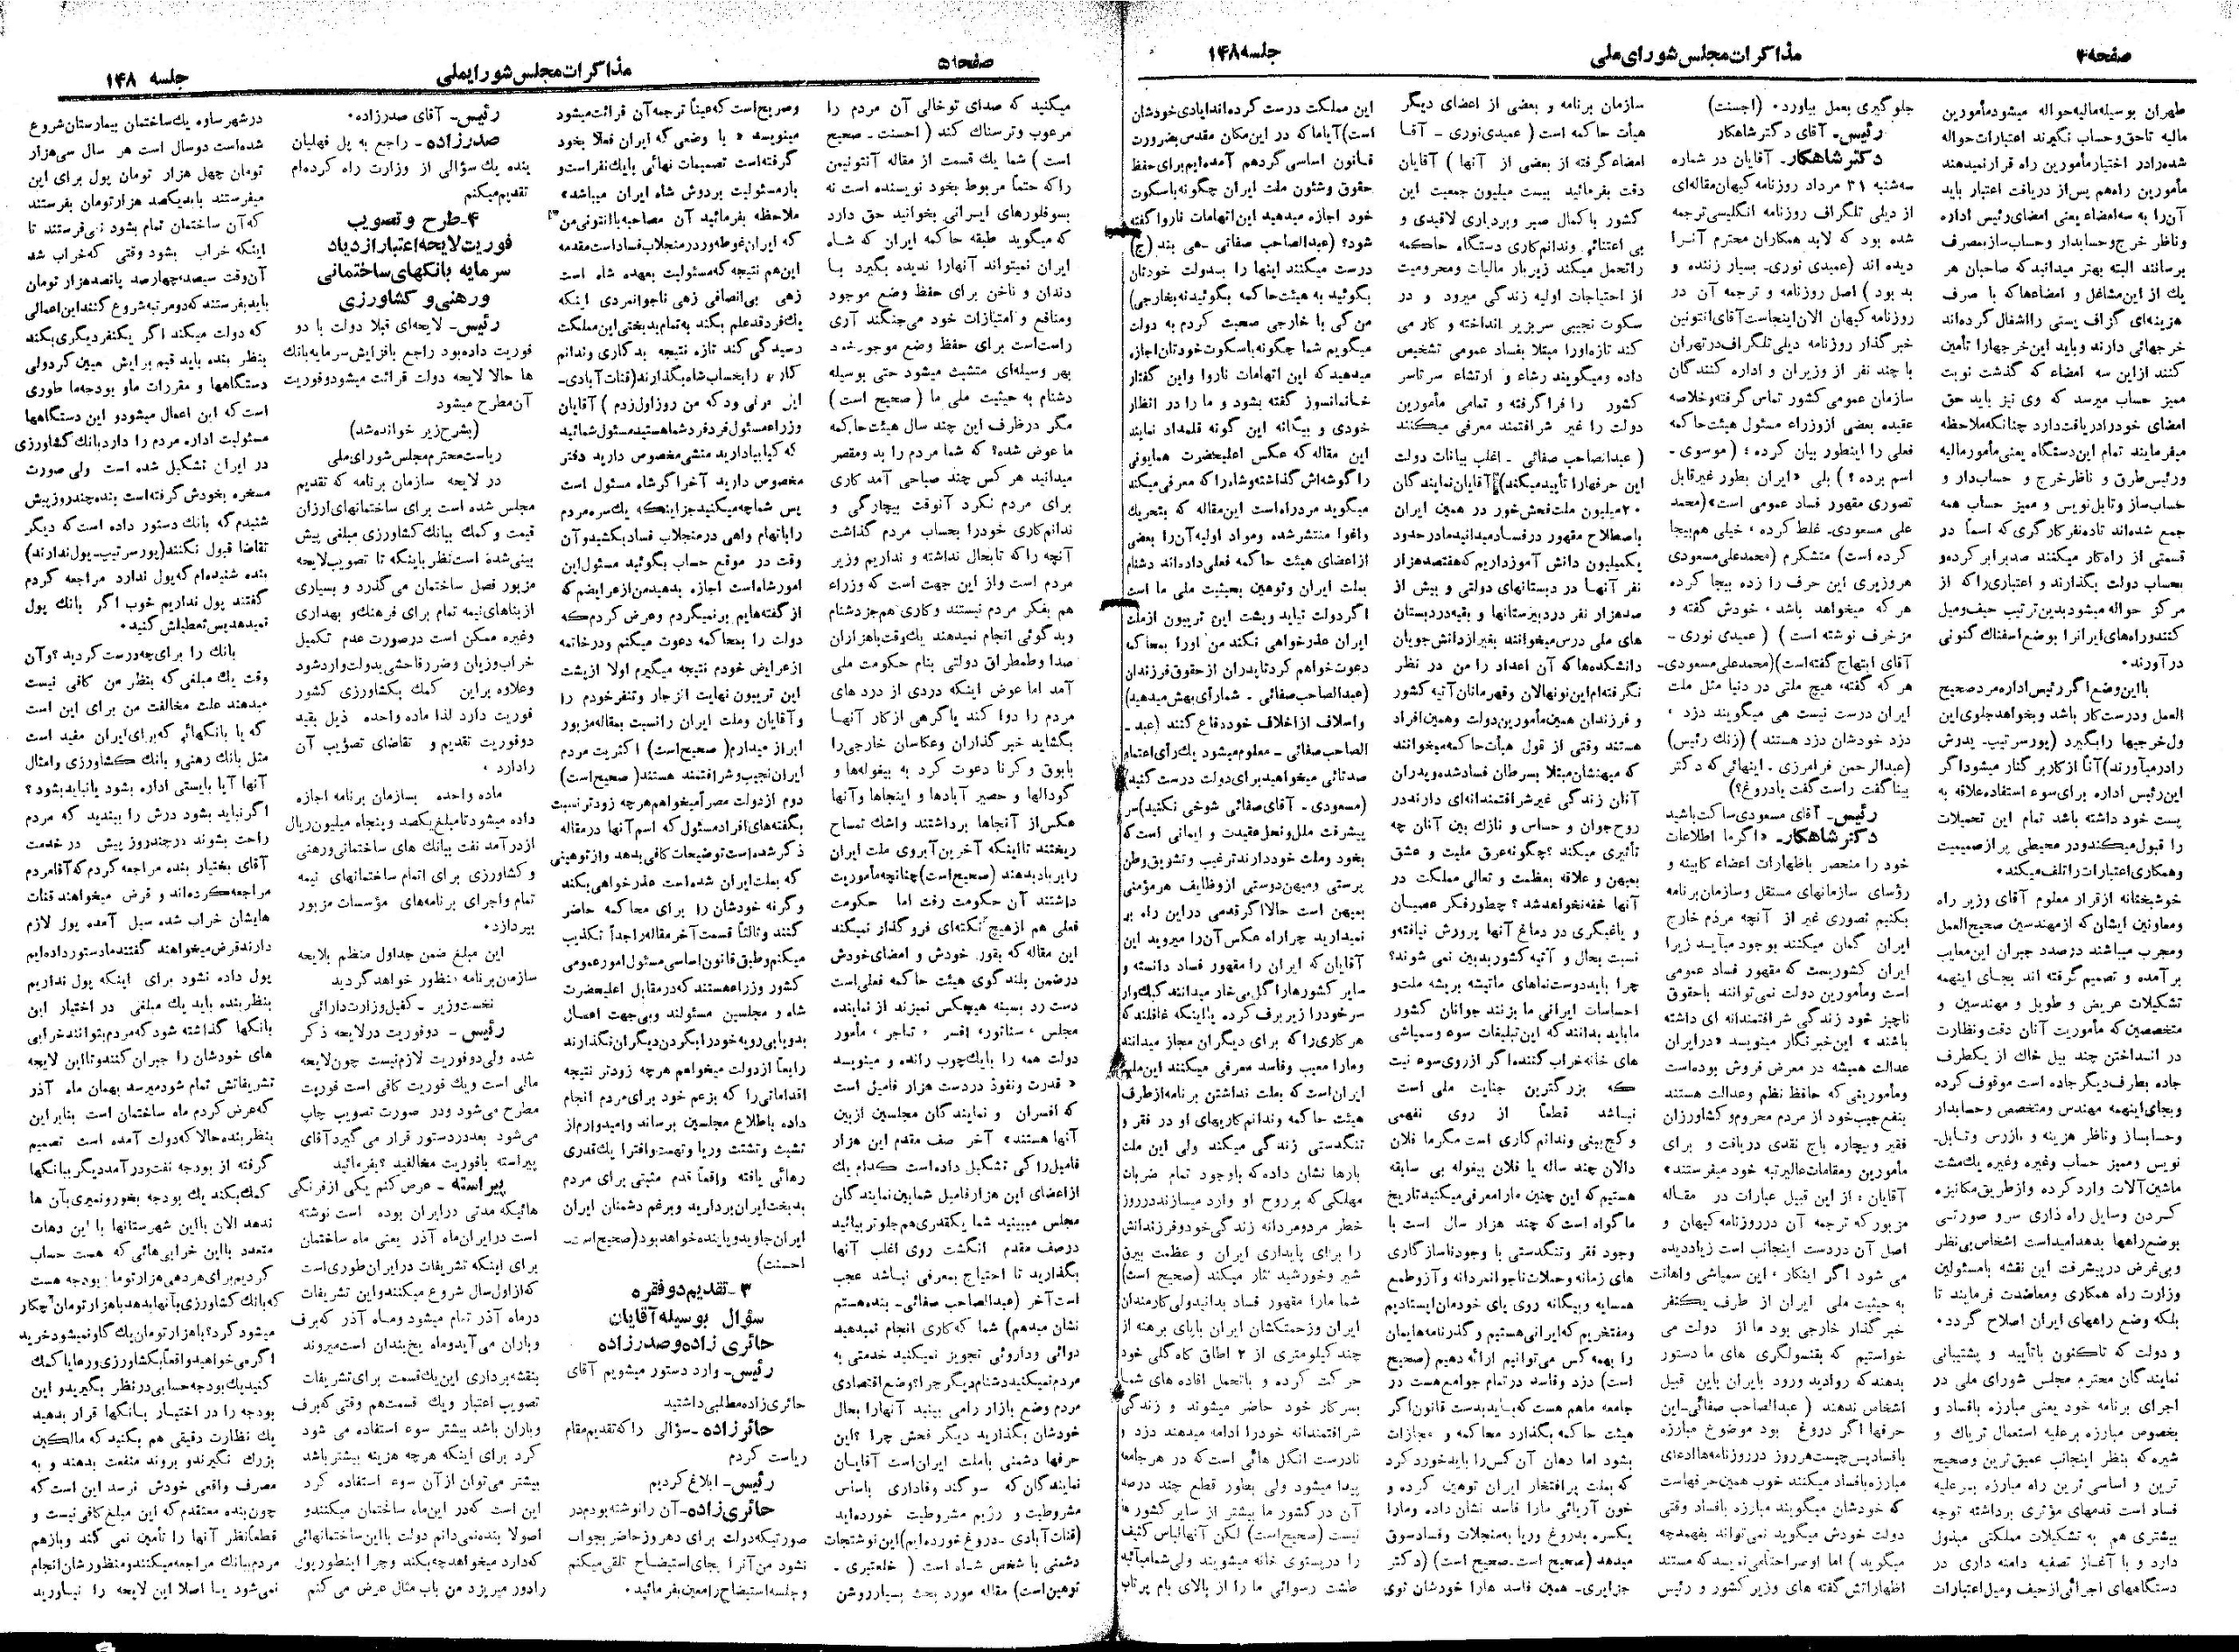 صفحه۴
مذاکرات مجلس شورای ملی
جلسه ۱۴۸
طهران بوسیله مالیه حواله میشود مأمورین
مالیه تاحق وحساب نگیرند اعتبارات حواله
شده رادر اختیار مأمورین راه قرار نمیدهند
مأمورین راه هم پس از دریافت اعتبار باید
آن را به سه امضاء یعنی امضای رئیس اداره
وناظر خرج وحسابدار وحساب ساز بمصرف
برسانند البته بهتر میدانید که صاحبان هر
یك از این مشاغل و امضاءها که با صرف
هزینه‌های گزاف پستی را اشغال کرده‌اند
خرجهائی دارند وباید این خرجها را تأمین
کنند ازاین سه امضاء که گذشت نوبت
ممیز حساب میرسد که وی نیز باید حق
امضای خود را دریافت دارد چنانکه ملاحظه
میفرمایند تمام این دستگاه یعنی مأمور مالیه
ورئیس طرق و ناظر خرج و حساب دار و
حساب ساز و تابل نویس و ممیز حساب همه
جمع شده‌اند تا ده نفر کارگری که اسماً در
قسمتی از راه کار میکنند صد برابر کرده و
بحساب دولت بگذارند و اعتباری را که از
مرکز حواله میشود بدین ترتیب حیف ومیل
کنند و راه‌های ایران را بوضع اسفناك کنونی
در آورند.
با این وضع اگر رئیس اداره مرد صحیح
العمل ودرست کار باشد و بخواهد جلوی این
ول خرجیها را بگیرد (پورسرتیپ ـ پدرش
را در میآورند) آناً از کار بر کنار میشود اگر
این رئیس اداره برای سوء استفاده علاقه به
پست خود داشته باشد تمام این تحمیلات
را قبول میکند و در محیطی پر از صمیمیت
وهمکاری اعتبارات را تلف میکند.
خوشبختانه از قرار معلوم آقای وزیر راه
ومعاونین ایشان که از مهندسین صحیح العمل
ومجرب میباشند درصدد جبران این معایب
بر آمده و تصمیم گرفته اند بجای اینهمه
تشکیلات عریض و طویل و مهندسین و
متخصصین که مأموریت آنان دقت ونظارت
در انداختن چند بیل خاك از یکطرف
جاده بطرف دیگر جاده است موقوف کرده
و بجای اینهمه مهندس ومتخصص وحسابدار
وحسابساز و ناظر هزینه و بازرس وتابل‌ـ
نویس وممیز حساب وغیره وغیره یك مشت
ماشین آلات وارد کرده و از طریق مکانیزه
کردن وسایل راه سازی سر و صورتی
بوضع راهها بدهد امید است اشخاص بی نظر
وبی غرض در پیشرفت این نقشه بامسئولین
وزارت راه همکاری ومعاضدت فرمایند تا
بلکه وضع راههای ایران اصلاح گردد.
و دولت که تاکنون با تأیید و پشتیبانی
نمایندگان محترم مجلس شورای ملی در
اجرای برنامه خود یعنی مبارزه بافساد و
بخصوص مبارزه بر علیه استعمال تریاك و
شیره که بنظر اینجانب عمیق ترین وصحیح
ترین و اساسی ترین راه مبارزه بر علیه
فساد است قدمهای مؤثری برداشته توجه
بیشتری هم به تشکیلات مملکتی مبذول
دارد و با آغاز تصفیه دامنه داری در
دستگاههای اجرائی از حیف ومیل اعتبارات
جلوگیری بعمل بیاورد. (احسنت)
رئیس ـ آقای دکتر شاهکار
دکتر شاهکار ـ آقایان در شماره
سه شنبه ۳۱ مرداد روزنامه کیهان مقاله‌ای
از دیلی تلگراف روزنامه انگلیسی ترجمه
شده بود که لابد همکاران محترم آنرا
دیده اند (عمیدی نوری ـ بسیار زننده و
بد بود) اصل روزنامه و ترجمه آن در
روزنامه کیهان الان اینجاست آقای آنتونین
خبرگذار روزنامه دیلی تلگراف در تهران
با چند نفر از وزیران و اداره کنندگان
سازمان عمومی کشور تماس گرفته وخلاصه
عقیده بعضی از وزراء مسئول هیئت حاکمه
فعلی را اینطور بیان کرده: (موسوی ـ
اسم برده؟) بلی «ایران بطور غیر قابل
تصوری مقهور فساد عمومی است» (محمد
علی مسعودی ـ غلط کرده، خیلی هم بیجا
کرده است) متشکرم (محمد علی مسعودی
هر وزیری این حرف را زده بیجا کرده
هر که میخواهد باشد، خودش گفته و
مزخرف نوشته است) (عمیدی نوری ـ
آقای ابتهاج گفته است) (محمد علی مسعودی ـ
هر که گفته، هیچ ملتی در دنیا مثل ملت
ایران درست نیست هی میگویند دزد،
دزد خودشان دزد هستند) (زنگ رئیس)
(عبدالرحمن فرامرزی ـ اینهائی که دکتر
بینا گفت راست گفت یا دروغ؟)
رئیس ـ آقای مسعودی ساکت باشید
دکتر شاهکار ـ «اگر ما اطلاعات
خود را منحصر باظهارات اعضاء کابینه و
رؤسای سازمانهای مستقل وسازمان برنامه
بکنیم تصوری غیر از آنچه مردم خارج
ایران گمان میکنند بوجود میآید زیرا
ایران کشوریست که مقهور فساد عمومی
است ومأمورین دولت نمی توانند باحقوق
ناچیز خود زندگی شرافتمندانه ای داشته
باشند» این خبر نگار مینویسد «در ایران
عدالت همیشه در معرض فروش بوده است
ومأمورینی که حافظ نظم وعدالت هستند
بنفع جیب خود از مردم محروم و کشاورزان
فقیر و بیچاره باج نقدی دریافت و برای
مأمورین ومقامات عالیرتبه خود میفرستند»
آقایان: از این قبیل عبارات در مقاله
مزبور که ترجمه آن در روزنامه کیهان و
اصل آن در دست اینجانب است زیاد دیده
می شود اگر اینکار، این سمپاشی واهانت
به حیثیت ملی ایران از طرف یکنفر
خبرگذار خارجی بود ما از دولت می
خواستیم که بقنسولگری های ما دستور
بدهند که روادید ورود بایران باین قبیل
اشخاص ندهند (عبدالصاحب صفائی ـ این
حرفها اگر دروغ بود موضوع مبارزه
بافساد پس چیست هر روز در روزنامه ها ادعای
مبارزه بافساد میکنند خوب همین حرفهاست
که خودشان میگویند مبارزه بافساد وقتی
دولت خودش میگوید نمی تواند بفهمد چه
میگوید) اما او صراحتاً می نویسد که مستند
اظهاراتش گفته های وزیر کشور و رئیس
سازمان برنامه و بعضی از اعضای دیگر
هیأت حاکمه است (عمیدی نوری ـ آقا
امضاء گرفته از بعضی از آنها) آقایان
دقت بفرمائید بیست میلیون جمعیت این
کشور باکمال صبر وبردباری لاقیدی و
بی اعتنائی وندانم کاری دستگاه حاکمه
را تحمل میکند زیر بار مالیات ومحرومیت
از احتیاجات اولیه زندگی میرود و در
سکوت نجیبی سر بزیر انداخته و کار می
کند تازه اورا مبتلا بفساد عمومی تشخیص
داده ومیگویند رشاء و ارتشاء سر تاسر
کشور را فرا گرفته و تمامی مأمورین
دولت را غیر شرافتمند معرفی میکنند
(عبدالصاحب صفائی ـ اغلب بیانات دولت
این حرفها را تأیید میکند) آقایان نمایندگان
۲۰ میلیون ملت فحش خور در همین ایران
باصطلاح مقهور در فساد میدانید ما در حدود
یکمیلیون دانش آموز داریم که هفتصد هزار
نفر آنها در دبستانهای دولتی و بیش از
صد هزار نفر در دبیرستانها و بقیه در دبستان
های ملی درس میخوانند بغیر از دانش جویان
دانشکده ها که آن اعداد را من در نظر
نگرفته‌ام این نونهالان وقهرمانان آتیه کشور
و فرزندان همین مأمورین دولت وهمین افراد
هستند وقتی از قول هیأت حاکمه میخوانند
که میهنشان مبتلا بسرطان فساد شده وپدران
آنان زندگی غیر شرافتمندانه‌ای دارند در
روح جوان و حساس و نازك بین آنان چه
تأثیری میکند؟ چگونه عرق ملیت و عشق
بمیهن و علاقه بعظمت و تعالی مملکت در
آنها خفه نخواهد شد؟ چطور فکر عصیان
و یاغیگری در دماغ آنها پرورش نیافته و
نسبت بحال و آتیه کشور بدبین نمی شوند؟
چرا باید دوست نماهای ما تیشه بریشه ملت و
احساسات ایرانی ما بزنند جوانان کشور
ما باید بدانند که این تبلیغات سوء وسمپاشی
های خانه خراب کننده اگر از روی سوء نیت
که بزرگترین جنایت ملی است
نباشد قطعاً از روی نفهمی
وکج بینی وندانم کاری است مگر ما فلان
دالان چند ساله یا فلان بیغوله بی سابقه
هستیم که این چنین ما را معرفی میکنید تاریخ
ما گواه است که چند هزار سال است با
وجود فقر وتنگدستی با وجود ناسازگاری
های زمانه وحملات ناجوانمردانه و آز وطمع
همسایه وبیگانه روی پای خودمان ایستادیم
ومفتخریم که ایرانی هستیم و گذرنامه هایمان
را بهمه کس می توانیم ارائه دهیم (صحیح
است) دزد وفاسد در تمام جوامع هست در
جامعه ما هم هست که باید بدست قانون اگر
هیئت حاکمه بگذارد محاکمه و مجازات
بشود اما دهان آن کس را باید خورد کرد
که بملت پر افتخار ایران توهین کرده و
خون آریائی ما را فاسد نشان داده ومارا
یکسره بدروغ وریا به منجلاب وفساد سوق
میدهد (صحیح است ـ صحیح است) (دکتر
جزایری ـ همین فاسد ها را خودشان توی
این مملکت درست کرده‌اند ایادی خودشان
است) آیا ما که در این مکان مقدس بضرورت
قانون اساسی گردهم آمده‌ایم برای حفظ
حقوق وشئون ملت ایران چگونه با سکوت
خود اجازه میدهید این اتهامات ناروا گفته
شود؟ (عبدالصاحب صفائی ـ هی بند (ج)
درست میکنند اینها را بدولت خودتان
بگوئید به هیئت حاکمه بگوئید نه بخارجی)
من کی با خارجی صحبت کردم به دولت
میگویم شما چگونه باسکوت خودتان اجازه
میدهید که این اتهامات ناروا واین گفتار
خانمانسوز گفته بشود و ما را در انظار
خودی و بیگانه این گونه قلمداد نمایند
این مقاله که عکس اعلیحضرت همایونی
را گوشه‌اش گذاشته وشاه را که معرفی میکند
میگوید مرد راه است این مقاله که بتحریك
واغوا منتشر شده ومواد اولیه آن را بعضی
از اعضای هیئت حاکمه فعلی داده‌اند دشنام
بملت ایران وتوهین بحیثیت ملی ما است
اگر دولت نیاید وپشت این تریبون از ملت
ایران عذر خواهی نکند من اورا بمحاکمه
دعوت خواهم کرد تا پدران از حقوق فرزندان
(عبدالصاحب صفائی ـ شما رأی بهش میدهید)
واسلاف از اخلاف خود دفاع کنند (عبد ـ
الصاحب صفائی ـ معلوم میشود یك رأی اعتماد
صد تائی میخواهید برای دولت درست کنید)
(مسعودی ـ آقای صفائی شوخی نکنید) سر
پیشرفت ملل و نحل عقیدت و ایمانی است که
بخود وملت خود دارند ترغیب و تشویق وطن
پرستی ومیهن دوستی از وظایف هر مؤمنی
بمیهن است حالا اگر قدمی در این راه بر
نمیدارید چرا راه عکس آن را میروید این
آقایان که ایران را مقهور فساد دانسته و
سایر کشورها را گل بی خار میدانند کبك وار
سر خود را زیر برف کرده یا اینکه غافلند که
هر کاری را که برای دیگران مجاز میدانند
ومارا معیب وفاسد معرفی میکنند این ملت
ایران است که بعلت نداشتن برنامه از طرف
هیئت حاکمه وندانم کاریهای او در فقر و
تنگدستی زندگی میکند ولی این ملت
بارها نشان داده که باوجود تمام ضربات
مهلکی که بر روح او وارد میسازند در روز
خطر مردو مردانه زندگی خود و فرزندانش
را برای پایداری ایران و عظمت بیرق
شیر وخورشید نثار میکند (صحیح است)
شما مارا مقهور فساد بدانید ولی کارمندان
ایران وزحمتکشان ایران با پای برهنه از
چند کیلومتری از ۲ اطاق کاه گلی خود
حرکت کرده و باتحمل افاده های شما
بسر کار خود حاضر میشوند و زندگی
شرافتمندانه خودرا ادامه میدهند دزد و
نادرست انگل هائی است که در هر جامعه
پیدا میشود ولی بطور قطع چند درصد
آن در کشور ما بیشتر از سایر کشور ها
نیست (صحیح است) لکن آنها لباس کثیف
را در پستوی خانه میشویند ولی شما میآئید
طشت رسوائی ما را از بالای بام پرتاب
صفحه۵
مذاکرات مجلس شورایملی
جلسه ۱۴۸
میکنید که صدای توخالی آن مردم را
مرعوب وترسناك کند (احسنت ـ صحیح
است) شما یك قسمت از مقاله آنتونیین
را که حتماً مربوط بخود نویسنده است نه
بسوفلورهای ایرانی بخوانید حق دارد
که میگوید طبقه حاکمه ایران که شاه
ایران نمیتواند آنهارا ندیده بگیرد با
دندان و ناخن برای حفظ وضع موجود
ومنافع و امتیازات خود می‌جنگند آری
راست است برای حفظ وضع موجود خود
بهر وسیله‌ای متشبث میشود حتی بوسیله
دشنام به حیثیت ملی ما (صحیح است)
مگر در ظرف این چند سال هیئت حاکمه
ما عوض شده؟ که شما مردم را بد ومقصر
میدانید هر کس چند صباحی آمد کاری
برای مردم نکرد آنوقت بیچارگی و
ندانم کاری خودرا بحساب مردم گذاشت
آنچه را که تابحال نداشته و نداریم وزیر
مردم است واز این جهت است که وزراء
هم بفکر مردم نیستند وکاری هم جز دشنام
وبد گوئی انجام نمیدهند یك وقت باهزاران
صدا وطمطراق دولتی بنام حکومت ملی
آمد اما عوض اینکه دردی از درد های
مردم را دوا کند یا گرهی از کار آنها
بگشاید خبرگذاران وعکاسان خارجی را
بابوق و کرنا دعوت کرد به بیغوله‌ها و
گودالها و حصیر آبادها و اینجاها و آنها
عکس از آنجاها برداشتند واشك تمساح
ریختند تا اینکه آخرین آبروی ملت ایران
را بر باد بدهند (صحیح است) چنانچه مأموریت
داشتند آن حکومت رفت اما حکومت
فعلی هم از هیچ نکته‌ای فرو گذار نمیکند
این مقاله که بقول خودش و امضای خودش
در ضمن بلند گوی هیئت حاکمه فعلی است
دست رد بسینه هیچکس نمیزند از نماینده
مجلس، سناتور، افسر، تاجر، مأمور
دولت همه را بایك چوب رانده و مینویسد
«قدرت ونفوذ در دست هزار فامیل است
که افسران و نمایندگان مجلسین از بین
آنها هستند» آخر صف مقدم این هزار
فامیل را کی تشکیل داده است کدام یك
از اعضای این هزار فامیل شما بین نمایندگان
مجلس میبینید شما یکقدری هم جلوتر بیائید
در صف مقدم انگشت روی اغلب آنها
بگذارید تا احتیاج بمعرفی نباشد عجب
است آخر (عبدالصاحب صفائی ـ بنده هستم
نشان میدهم) شما که کاری انجام نمیدهید
دوائی وداروئی تجویز نمیکنید خدمتی به
مردم نمیکنید دشنام دیگر چرا؟ وضع اقتصادی
مردم وضع بازار را می بینید آنهارا بحال
خودشان بگذارید دیگر فحش چرا؟ این
حرفها دشمنی باملت ایران است آقایان
نمایندگان که سوگند وفاداری باساس
مشروطیت و رژیم مشروطیت خورده‌اید
(قنات آبادی ـ دروغ خورده‌ایم) این نوشتجات
دشمنی با شخص شاه است (خلعتبری ـ
توهین است) مقاله مورد بحث بسیار روشن
وصریح است که عیناً ترجمه آن قرائت میشود
مینویسد «با وضعی که ایران فعلا بخود
گرفته است تصمیمات نهائی بایك نفر است و
بار مسئولیت بر دوش شاه ایران میباشد»
ملاحظه بفرمائید آن مصاحبه باانتونی من
که ایران غوطه ور در منجلاب فساد است مقدمه
این هم نتیجه که مسئولیت بعهده شاه است
زهی بی انصافی زهی ناجوانمردی اینکه
یك فرد قد علم بکند به تمام بدبختی این مملکت
رسیدگی کند تازه نتیجه بد کاری وندانم
کاری را بحساب شاه بگذارند (قنات آبادی ـ
این حرفی بود که من روز اول زدم) آقایان
وزراء مسئول فرد فرد شما هستید مسئول شمائید
که کیا بیا دارید منشی مخصوص دارید دفتر
مخصوص دارید آخر اگر شاه مسئول است
پس شما چه میکنید جز اینکه یك سره مردم
را باتهام واهی در منجلاب فساد بکشید و آن
وقت در موقع حساب بگوئید مسئول این
امور شاه است اجازه بدهید من از عرایضم که
از گفته هایم بر نمیگردم وعرض کردم که
دولت را بمحاکمه دعوت میکنم ودر خاتمه
از عرایض خودم نتیجه میگیرم اولا از پشت
این تریبون نهایت انزجار وتنفر خودم را
و آقایان وملت ایران را نسبت بمقاله مزبور
ابراز میدارم (صحیح است) اکثریت مردم
ایران نجیب وشرافتمند هستند (صحیح است)
دوم از دولت مصراً میخواهم هر چه زودتر نسبت
بگفته های افراد مسئول که اسم آنها در مقاله
ذکر شده است توضیحات کافی بدهد و از توهینی
که بملت ایران شده است عذر خواهی بکند
وگرنه خودشان را برای محاکمه حاضر
کنند و ثالثاً قسمت آخر مقاله را جداً تکذیب
میکنم و طبق قانون اساسی مسئول امور عمومی
کشور وزراء هستند که در مقابل اعلیحضرت
شاه و مجلسین مسئولند وبی جهت اعمال
بد وبی رویه خود را بگردن دیگران نگذارند
رابعاً از دولت میخواهم هر چه زودتر نتیجه
اقداماتی را که بزعم خود برای مردم انجام
داده باطلاع مجلسین برساند وامیدوارم از
تشبث وتشتت وریا وتهمت وافترا یك قدری
رهائی یافته واقعاً قدم مثبتی برای مردم
بدبخت ایران بردارید وبرغم دشمنان ایران
ایران جاوید و پاینده خواهد بود (صحیح است ـ
احسنت)
۳ ـ تقدیم دو فقره
سؤال بوسیله آقایان
حائری زاده و صدرزاده
رئیس ـ وارد دستور میشویم آقای
حائری زاده مطلبی داشتید
حائرزاده ـ سؤالی را که تقدیم مقام
ریاست کردم
رئیس ـ ابلاغ کردیم
حائری زاده ـ آن را نوشته بودم در
صورتیکه دولت برای ده روز حاضر بجواب
نشود من آنرا بجای استیضاح تلقی میکنم
و جلسه استیضاح را معین بفرمائید.
رئیس ـ آقای صدرزاده.
صدرزاده ـ راجع به پل فهلیان
بنده یك سؤالی از وزارت راه کرده‌ام
تقدیم میکنم
۴ ـ طرح و تصویب
فوریت لایحه اعتبار ازدیاد
سرمایه بانکهای ساختمانی
و رهنی و کشاورزی
رئیس ـ لایحه‌ای قبلا دولت با دو
فوریت داده بود راجع بافزایش سرمایه بانك
ها حالا لایحه دولت قرائت میشود وفوریت
آن مطرح میشود
(بشرح زیر خوانده شد)
ریاست محترم مجلس شورای ملی
در لایحه سازمان برنامه که تقدیم
مجلس شده است برای ساختمانهای ارزان
قیمت و کمك ببانك کشاورزی مبلغی پیش
بینی شده است نظر باینکه تا تصویب لایحه
مزبور فصل ساختمان می گذرد و بسیاری
از بناهای نیمه تمام برای فرهنك و بهداری
وغیره ممکن است در صورت عدم تکمیل
خراب وزیان وضرر فاحشی بدولت وارد شود
وعلاوه بر این کمك بکشاورزی کشور
فوریت دارد لذا ماده واحده ذیل بقید
دو فوریت تقدیم و تقاضای تصویب آن
را دارد.
ماده واحده بسازمان برنامه اجازه
داده میشود تا مبلغ یکصد و پنجاه میلیون ریال
از درآمد نفت ببانك های ساختمانی ورهنی
وکشاورزی برای اتمام ساختمانهای نیمه
تمام و اجرای برنامه‌های مؤسسات مزبور
بپردازد.
این مبلغ ضمن جداول منظم بلایحه
سازمان برنامه منظور خواهد گردید
نخست وزیر ـ کفیل وزارت دارائی
رئیس ـ دو فوریت در لایحه ذکر
شده ولی دو فوریت لازم نیست چون لایحه
مالی است ویك فوریت کافی است فوریت
مطرح می شود و در صورت تصویب چاپ
می‌شود بعد در دستور قرار می گیرد آقای
پیراسته بافوریت مخالفید؟ بفرمائید
پیراسته ـ عرض کنم یکی از فرنگی
هائیکه مدتی در ایران بوده است نوشته
است در ایران ماه آذر یعنی ماه ساختمان
برای اینکه تشریفات در ایران طوری است
که از اول سال شروع میکنند و این تشریفات
در ماه آذر تمام میشود وماه آذر که برف
وباران می آید و ماه یخ بندان است میروند
بنقشه برداری این یك قسمت برای تشریفات
تصویب اعتبار ویك قسمت هم وقتی که برف
وباران باشد بیشتر سوء استفاده می شود
کرد برای اینکه هر چه هزینه بیشتر باشد
بیشتر می توان از آن سوء استفاده کرد
این است که در این ماه ساختمان میکنند و
اصولا بنده نمی دانم دولت با این ساختمانهائی
که دارد میخواهد چه بکند و چرا اینطور پول
را دور میریزد من باب مثال عرض می کنم
در شهر ساوه یك ساختمان بیمارستان شروع
شده است دو سال است هر سال سی هزار
تومان چهل هزار تومان پول برای این
میفرستند باید یکصد هزار تومان بفرستند
که آن ساختمان تمام بشود نمی فرستند تا
اینکه خراب بشود وقتی که خراب شد
آن وقت سیصد چهارصد پانصد هزار تومان
باید بفرستند که دو مرتبه شروع کنند این اعمالی
که دولت میکند اگر یکنفر دیگری بکند
بنظر بنده باید قیم برایش معین کرد ولی
دستگاهها و مقررات ما و بودجه ما طوری
است که این اعمال میشود و این دستگاهها
مسئولیت اداره مردم را دارد بانك کشاورزی
در ایران تشکیل شده است ولی صورت
مسخره بخودش گرفته است بنده چند روز پیش
شنیدم که بانك دستور داده است که دیگر
تقاضا قبول نکنند (پورسرتیپ ـ پول ندارند)
بنده شنیده‌ام که پول ندارد مراجعه کردم
گفتند پول نداریم خوب اگر بانك پول
نمیدهد پس تعطیلش کنید.
بانك را برای چه درست کردید؟ و آن
وقت یك مبلغی که بنظر من کافی نیست
میدهند علت مخالفت من برای این است
که یا بانکهائی که برای ایران مفید است
مثل بانك رهنی و بانك کشاورزی وامثال
آنها آیا بایستی اداره بشود یا نباید بشود؟
اگر نباید بشود درش را ببندید که مردم
راحت بشوند در چند روز پیش در خدمت
آقای بختیار بنده مراجعه کردم که آقا مردم
مراجعه کرده‌اند و قرض میخواهند قنات
هایشان خراب شده سیل آمده پول لازم
دارند قرض میخواهند گفتند ما دستور داده‌ایم
پول داده نشود برای اینکه پول نداریم
بنظر بنده باید یك مبلغی در اختیار این
بانکها گذاشته شود که مردم بتوانند خرابی
های خودشان را جبران کنند و تا این لایحه
تشریفاتش تمام شود میرسد بهمان ماه آذر
که عرض کردم ماه ساختمان است بنابراین
بنظر بنده حالا که دولت آمده است تصمیم
گرفته از بودجه نفت و در آمد دیگر ببانکها
کمك بکند یك بودجه بخور و نمیری بآن ها
ندهد الان با این شهرستانها با این دهات
متعدد با این خرابی هائی که هست حساب
کردیم برای هر دهی هزار تومان بودجه هست
که بانك کشاورزی بآنها بدهد با هزار تومان چکار
میشود کرد؟ با هزار تومان یك گاو نمیشود خرید
اگر می خواهید واقعاً بکشاورزی و رعایا کمك
کنید یك بودجه حسابی در نظر بگیرید و این
بودجه را در اختیار بانکها قرار بدهید
یك نظارت دقیقی هم بکنید که مالکین
بزرك نگیرند و بروند منفعت بدهند و به
مصرف واقعی خودش نرسد این است که
چون بنده معتقدم که این مبلغ کافی نیست و
قطعاً نظر آنها را تأمین نمی کند و باز هم
مردم ببانك مراجعه میکنند و منظورشان انجام
نمی شود یا اصلا این لایحه را نیاورید